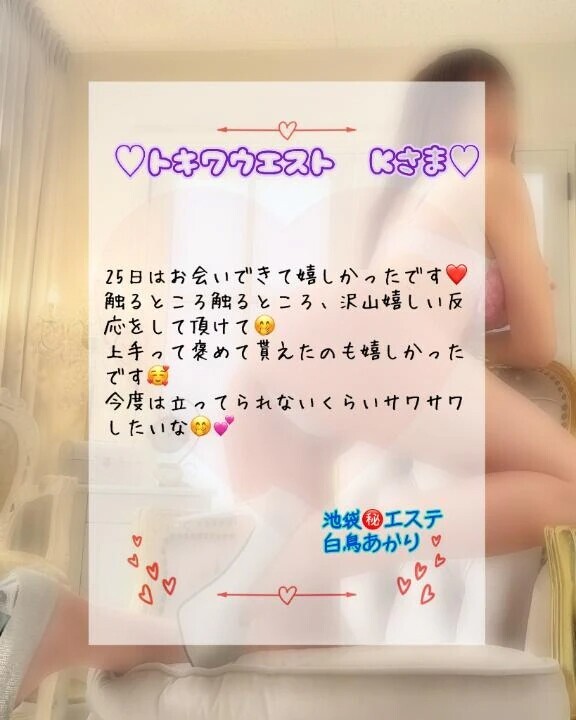 ♡トキワウエスト Kさま♡
25日はお会いできて嬉しかったです❤️
触るところ触るところ、沢山嬉しい反
応をして頂けて🤭
上手って褒めて貰えたのも嬉しかった
です🥰
今度は立ってられないくらいサワサワ
したいな🤭💕
池袋㊙️エステ
白鳥あかり